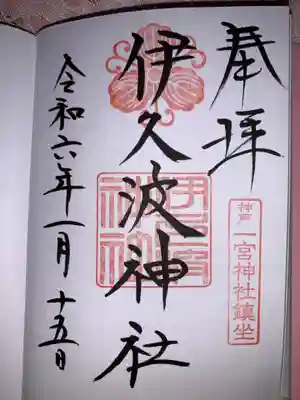 奉拝
神戸 一宮神社鎮坐
伊久波神社
令和六年一月十五日